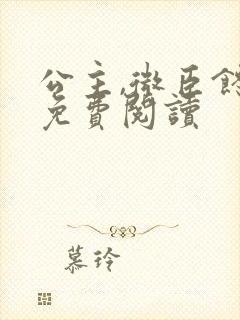 公主,微臣餓
免費閱讀
慕玲